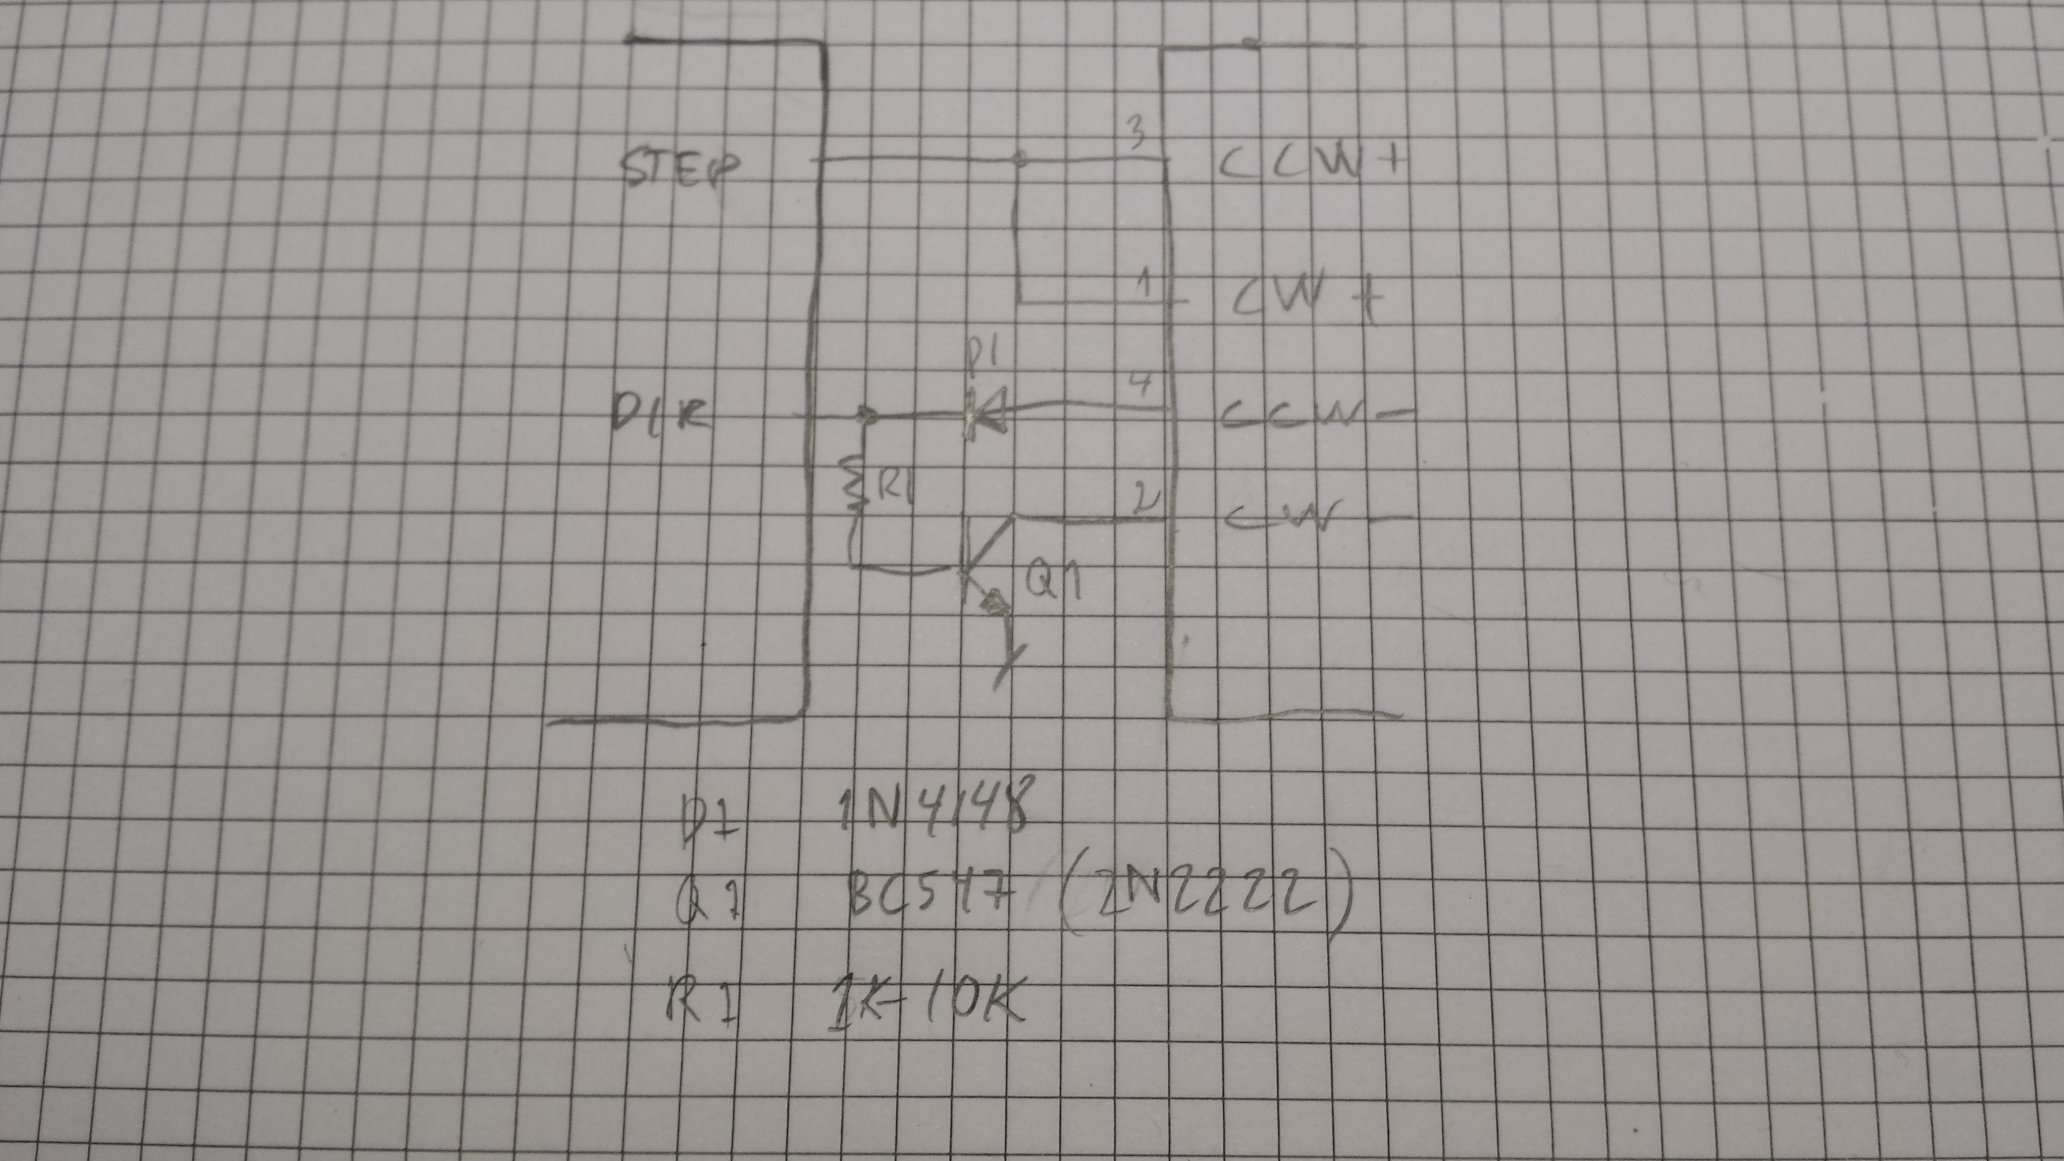 3
STEP CCW+
1 CW +
D1
4
DIR CCW-
R1
2
CW -
Q1
D1 1N4148
Q1 BC547 (2N2222)
R1 1K-10K